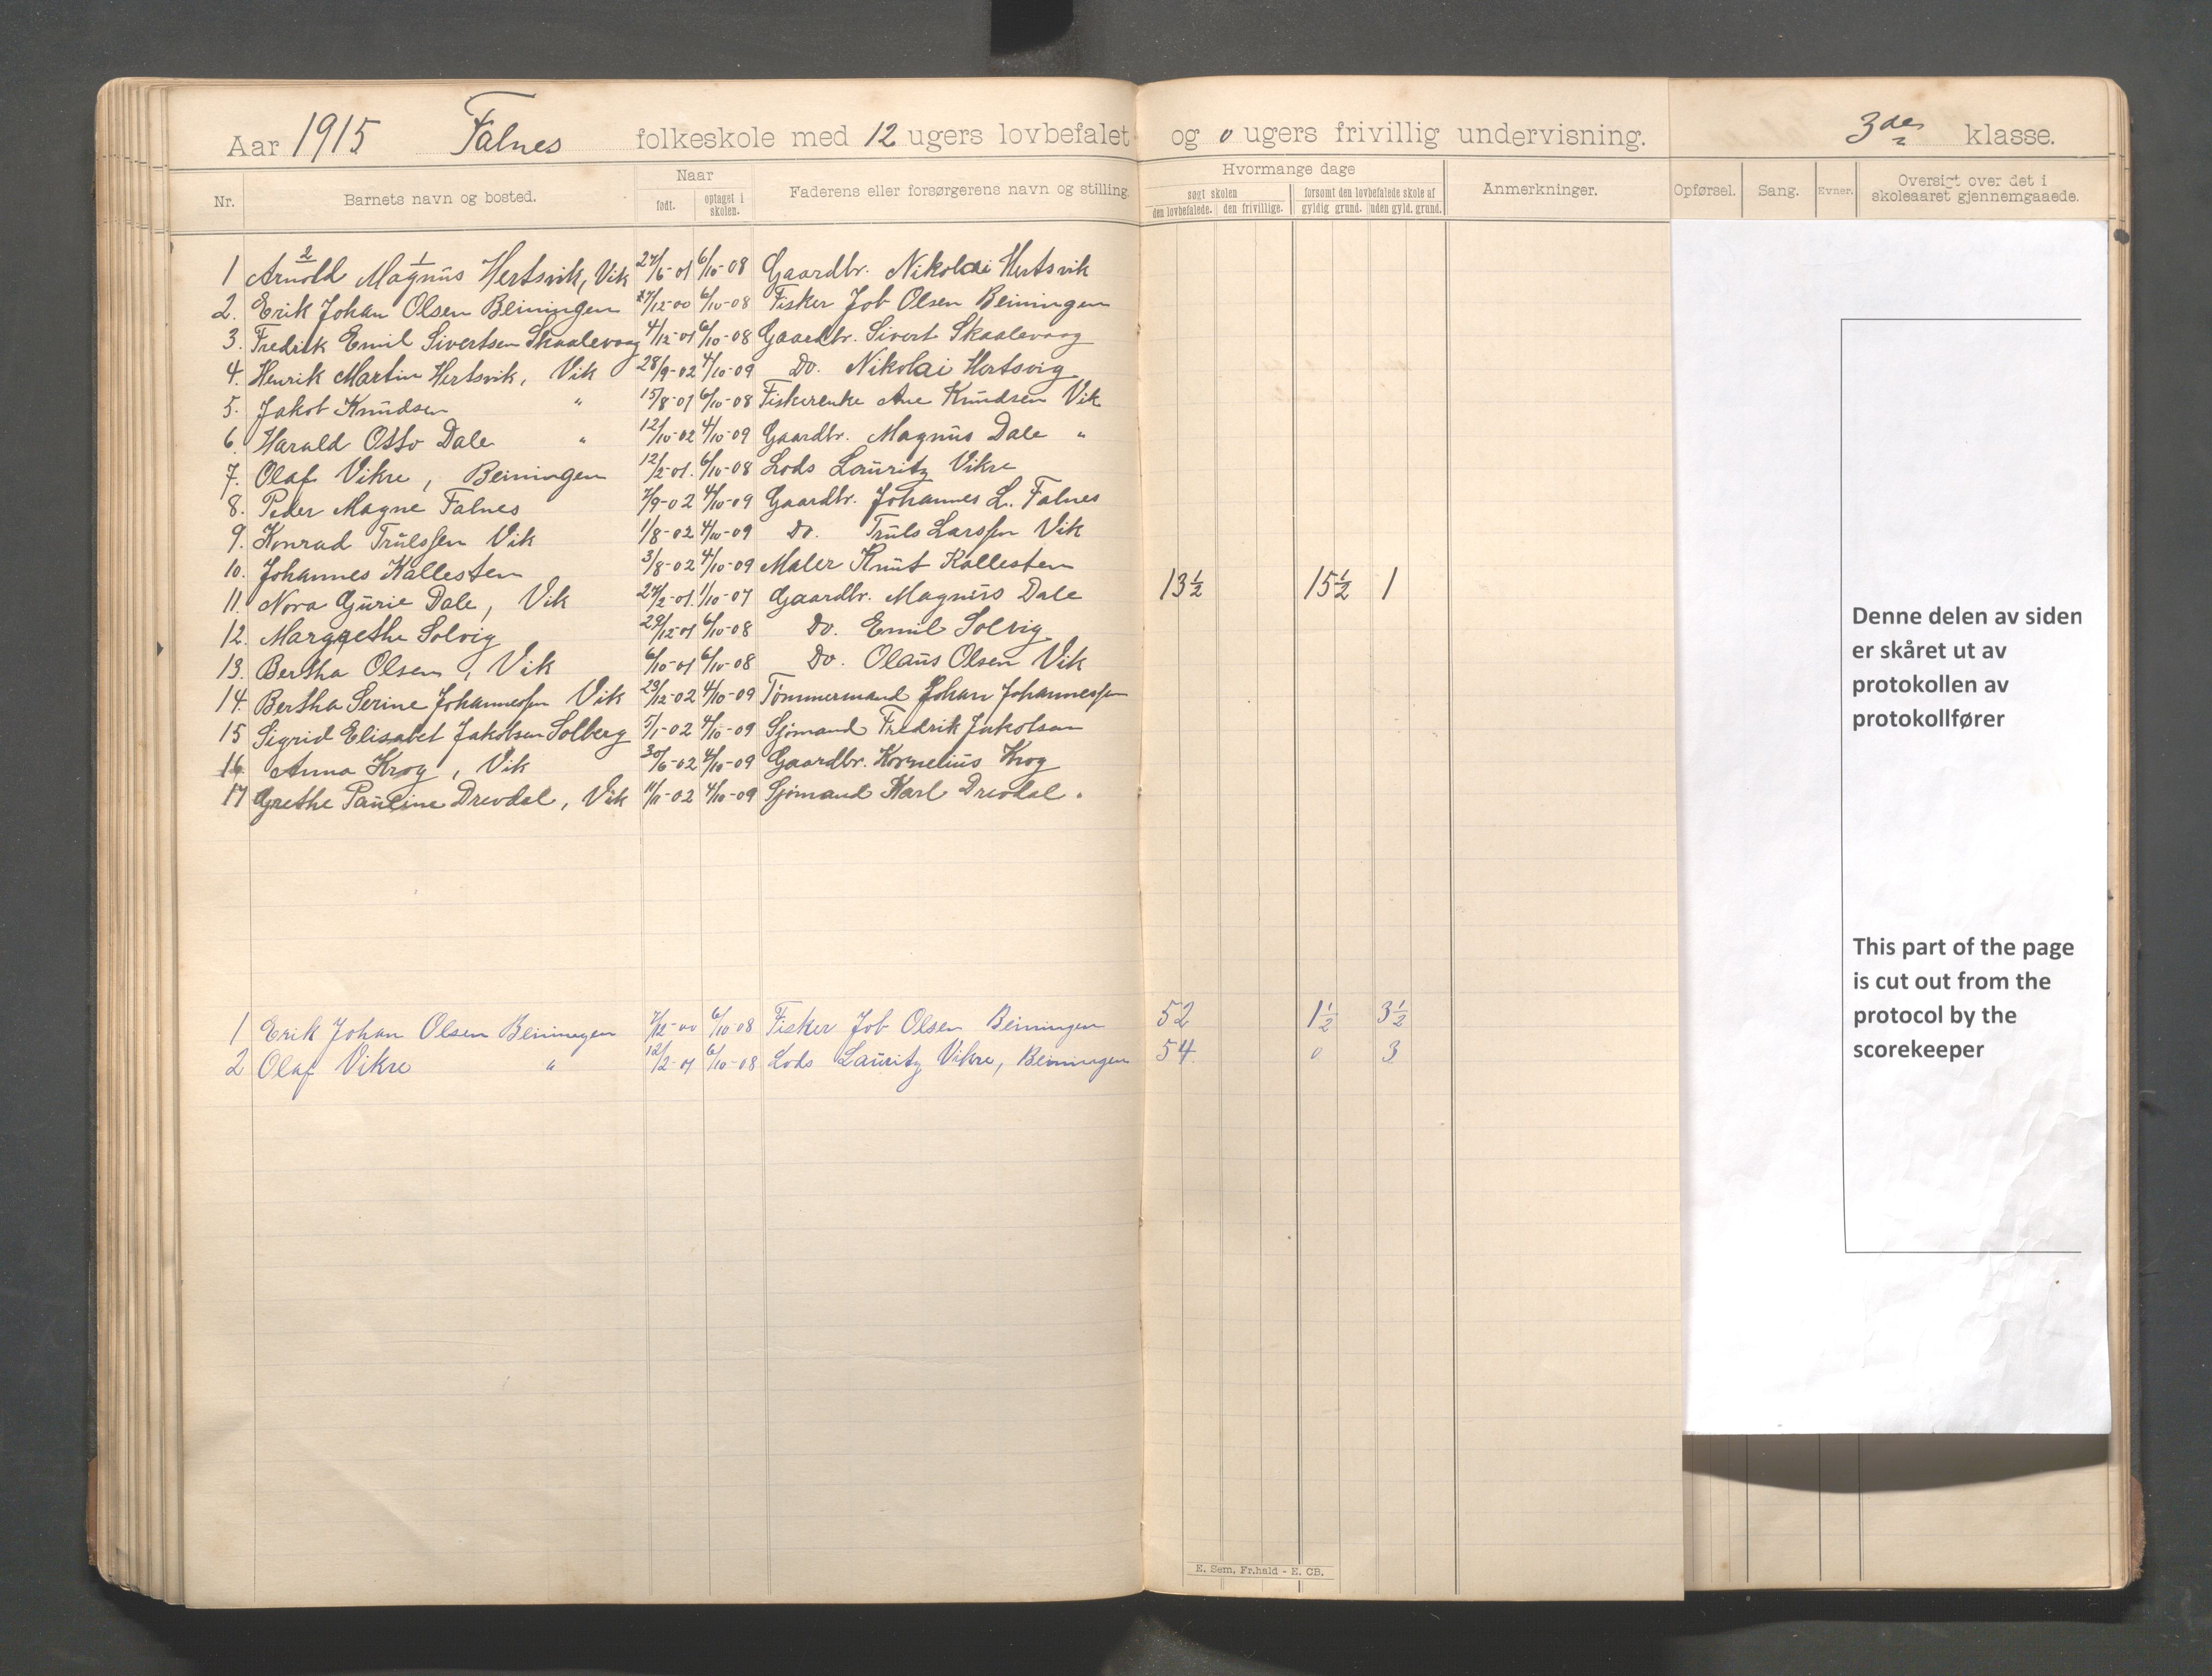 Aar 1915 Falnes folkeskole med 12 ugers lovbefalet og 0 ugers frivillig undervisning. 3die klasse.
Nr. Barnets navn og bosted. Naar født. optaget i skolen. Faderens eller forsørgerens navn og stilling. Hvormange dage søgt skolen den lovbefalede. den frivillige. forsømt den lovbefalede skole af gyldig grund. uden gyld. grund. Anmerkninger. Opførsel. Sang. Evner. Oversigt over det i skoleaaret gjennemgaaede.
2 1
1 Arnold Magnus Hertsvik, Vik 27/6-01 6/10-08 Gaardbr. Nikolai Hertsvik
2. Erik Johan Olsen Beiningen 27/12-00 6/10-08 Fisker Job Olsen Beiningen
3. Fredrik Emil Sivertsen Skaalevaag 4/12-01 6/10-08 Gaardbr. Sivert Skaalevaag
4. Henrik Martin Hertsvik, Vik 28/9-02 4/10-09 Do. Nikolai Hertsvig
5. Jakob Knudsen " 15/8-01 6/10-08 Fiskerenke Ane Knudsen Vik
6. Harald Otto Dale " 12/10-02 4/10-09 Gaardbr. Magnus Dale "
7. Olaf Vikre, Beiningen 12/2-01. 6/10-08 Lods Lauritz Vikre
8. Peder Magne Falnes 7/9-02 4/10-09 Gaardbr. Johannes L. Falnes
9. Konrad Trulssen Vik 1/8-02 4/10-09 Do. Truls Larssen Vik
10. Johannes Kallesten 3/8-02 4/10-09 Maler Knut Kallesten
11. Nora Gurie Dale, Vik 24/2-01. 1/10-07 Gaardbr. Magnus Dale 13½ 15½ 1
12. Margrethe Solvig 29/12-01 6/10-08 Do. Emil Solvig
13. Bertha Olsen, Vik 6/10-01 6/10-08 Do. Olaus Olsen Vik
14. Bertha Serine Johannessen Vik 23/12-02 4/10-09 Tømmermand Johan Johannessen
15 Sigrid Elisabet Jakobsen Solberg 5/1-02 4/10-09 Sjømand Fredrik Jakobsen
16. Anna Krog, Vik 30/6-02 4/10-09 Gaardbr. Kornelius Krog
17 Grethe Pauline Drevdal, Vik 11/11-02 4/10-09 Sjømand Karl Drevdal "
1 Erik Johan Olsen Beiningen 7/12-00 6/10-08 Fisker Job Olsen Beiningen 52 1½ 3½
2 Olaf Vikre " 12/2-01 6/10-08 Lods Lauritz Vikre, Beiningen 54 0 3
E. Sem, Fr.hald - E. CB.
Denne delen av siden
er skåret ut av
protokollen av
protokollfører
This part of the page
is cut out from the
protocol by the
scorekeeper